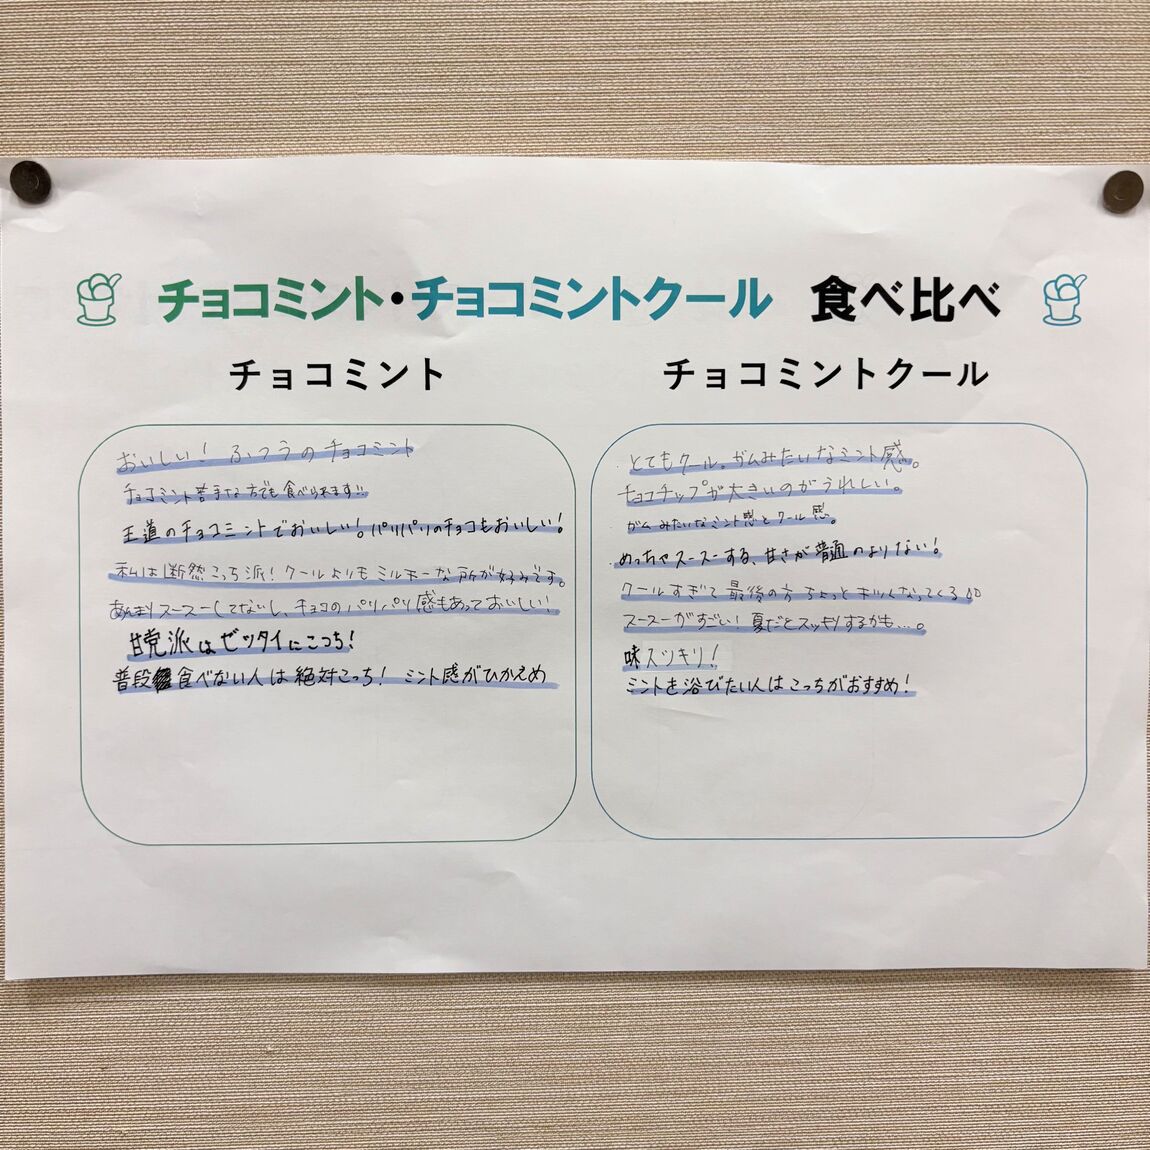 チョコミント・チョコミントクール 食べ比べ
チョコミント
おいしい！ ふつうのチョコミント
チョコミント苦手な方でも食べられます!!
王道のチョコミントでおいしい！パリパリのチョコもおいしい！
私は断然こっち派！クールよりもミルキーな所が好みです。
あんまりスースーしてないし、チョコのパリパリ感もあっておいしい！
甘党派はゼッタイにこっち！
普段食べない人は絶対こっち！ ミント感がひかえめ
チョコミントクール
とてもクール。ガムみたいなミント感。
チョコチップが大きいのがうれしい。
ガムみたいなミント感とクール感。
めっちゃスースーする、甘さが普通のよりない！
クールすぎて最後の方ちょっとキツくなってくる
スースーがすごい！夏だとスッキリするかも...。
味スッキリ！
ミントを浴びたい人はこっちがおすすめ！